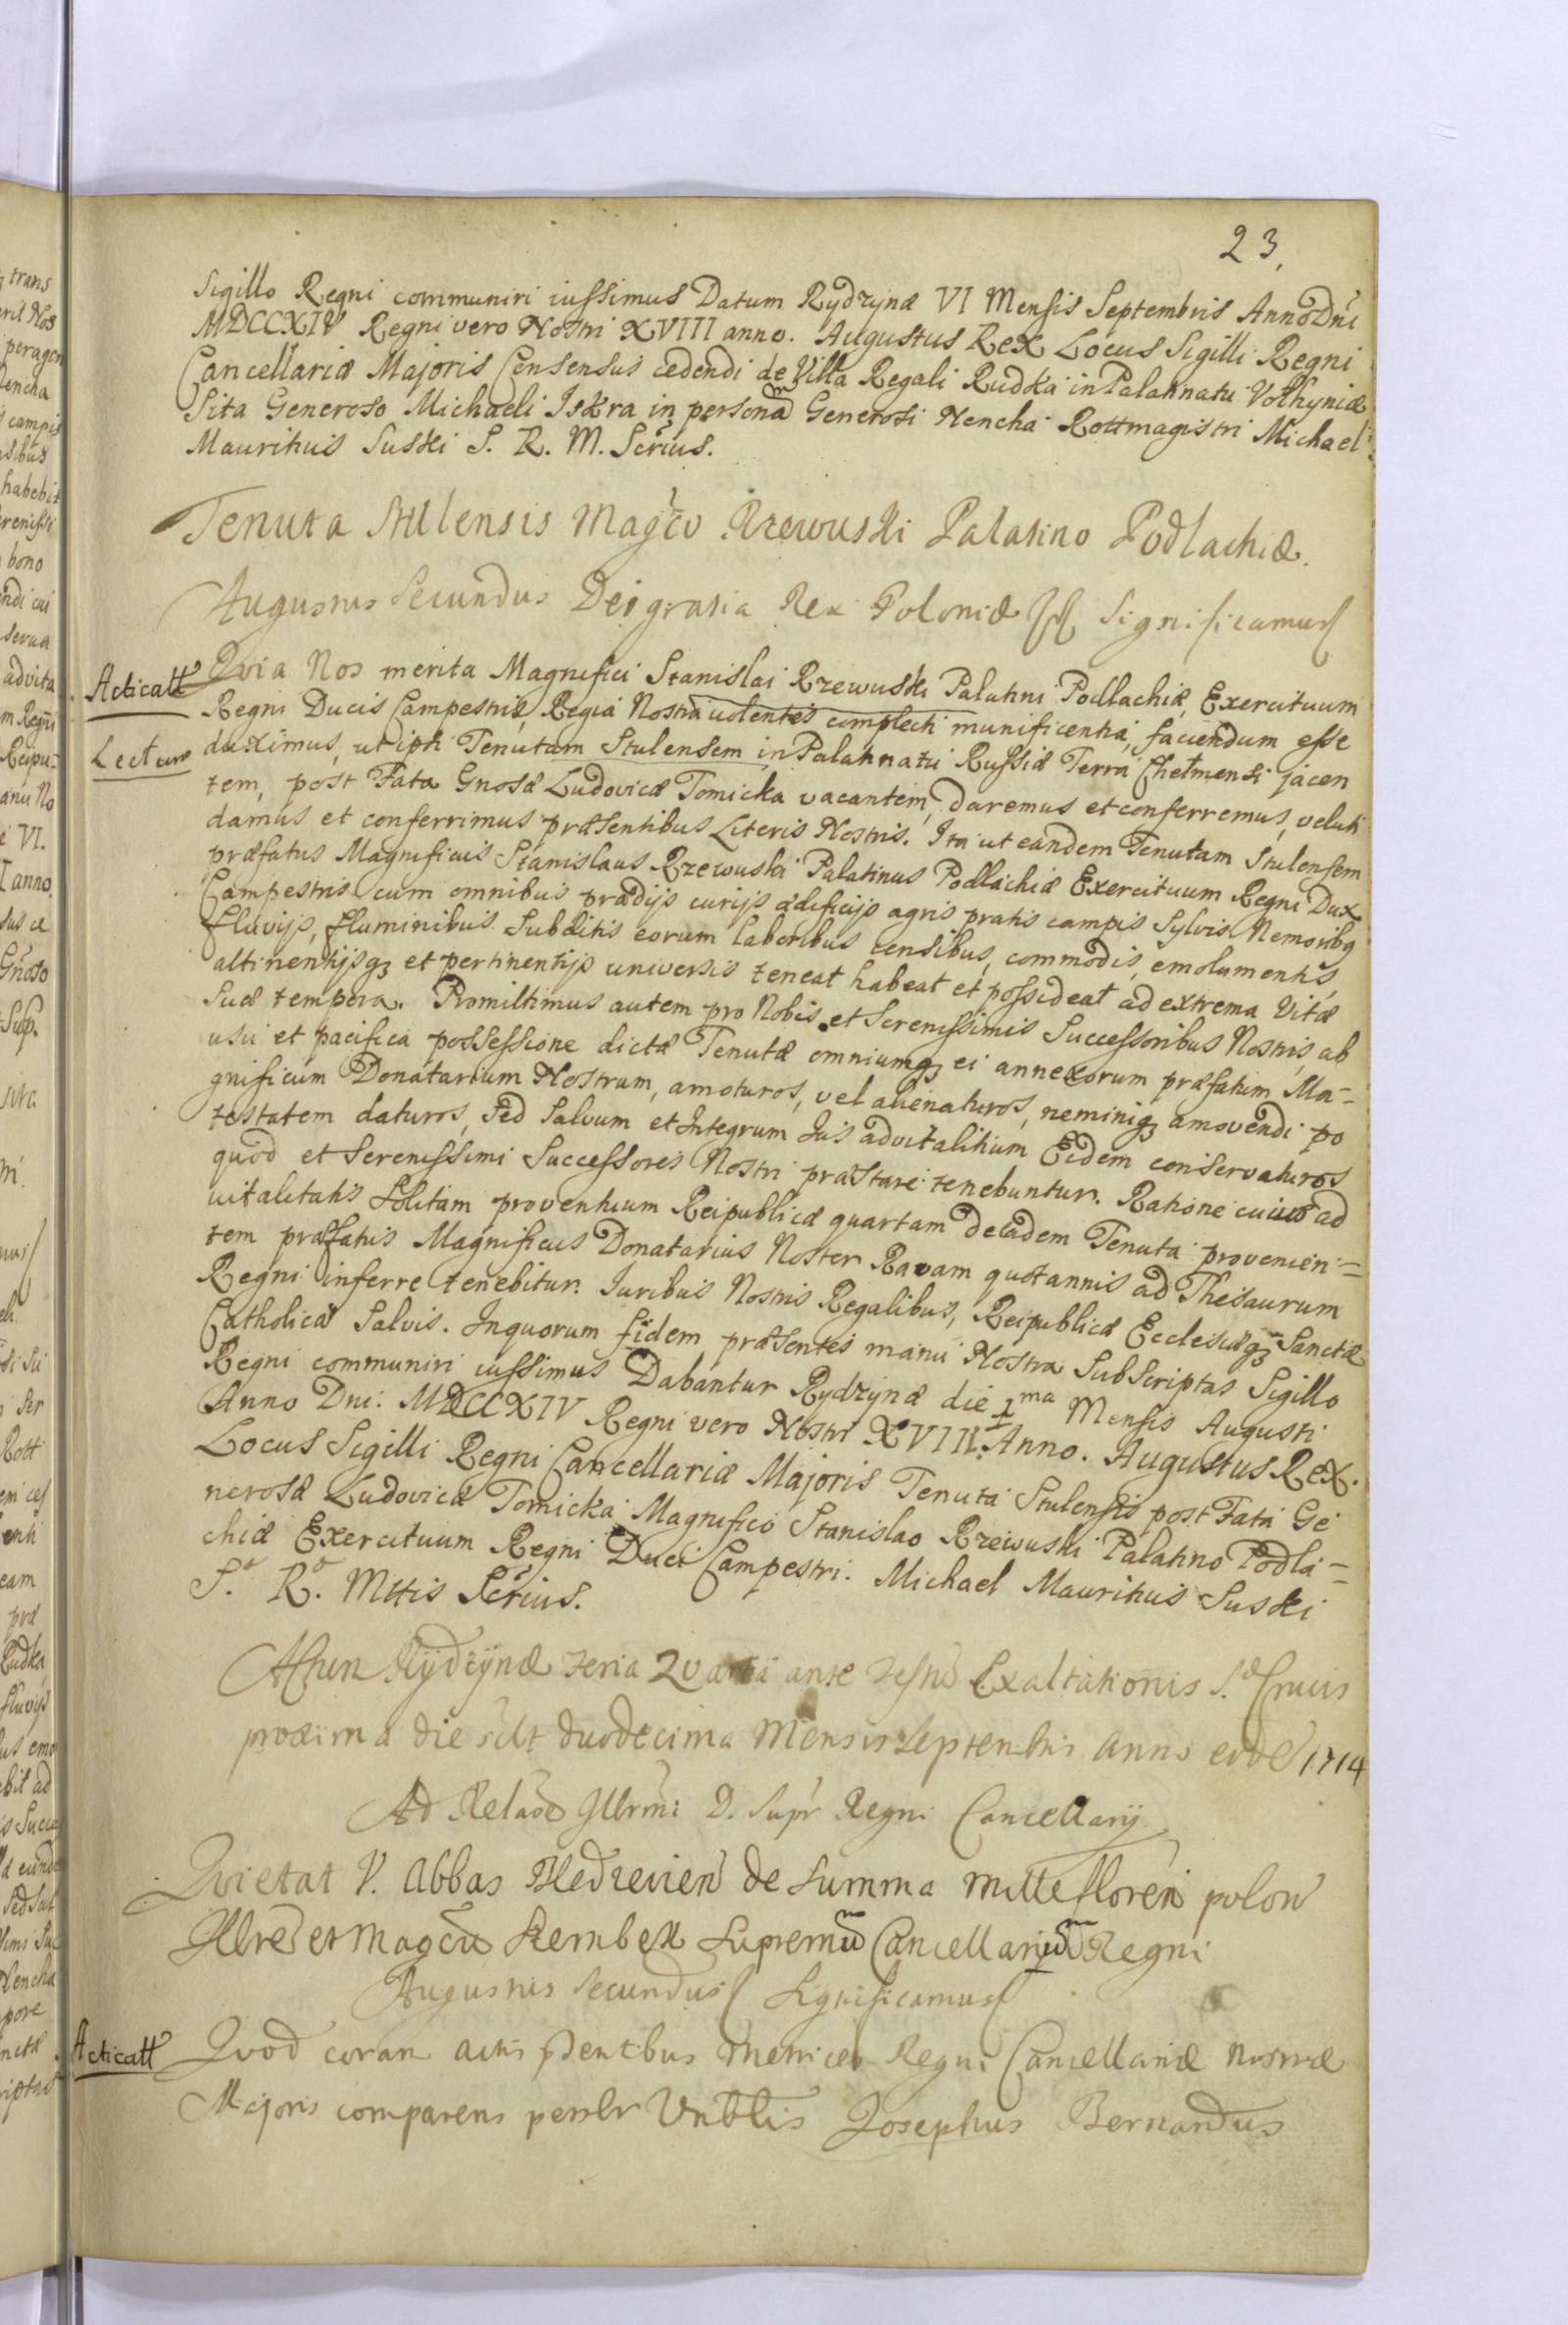 23.
Sigillo Regni communiri iussimus Datum Rydzynæ VI Mensis Septembris Anno Dni
MDCCXIV Regni vero Nostri XVIII anno. Augustus Rex Locus Sigilli Regni
Cancellariæ Majoris Consensus cedendi de Villa Regali Rudka in Palatinatu Volhyniæ
Sita Generoso Michaeli Iskra in personam Generosi Hencha Rottmagistri Michael
Mauritius Suski S. R. M. Scrius.
Tenuta Stulensis Magco Rzewuski Palatino Podlachiæ.
Augustus Secundus Dei gratia Rex Poloniæ Significamus
Acticatt
Quia Nos merita Magnifici Stanislai Rzewuski Palatini Podlachiæ, Exercituum
Regni Ducis Campestris, Regia Nostra volentes complecti munificentia, faciendum esse
Lectum
duximus, ut ipsi Tenutam Stulensem in Palatinatu Russiæ Terra Chelmensi jacen
tem, post Fata Gnosæ Ludovicæ Tomicka vacantem, daremus et conferremus, veluti
damus et conferrimus præsentibus Literis Nostris. Ita ut eandem Tenutam Stulensem
præfatus Magnificus Stanislaus Rzewuski Palatinus Podlachiæ Exercituum Regni Dux
Campestris cum omnibus prædijs curijs ædificijs agris pratis campis Sylvis Nemoribq
fluvijs, fluminibus Subditis eorum laboribus censibus, commodis, emolumentis,
attinentijsq et pertinentijs universis teneat habeat et possideat ad extrema Vitæ
Suæ tempora. Promittimus autem pro Nobis et Serenissimis Successoribus Nostris, ab
usu et pacifica possessione dictæ Tenutæ omniumq ei annexorum præfatum Ma-
gnificum Donatarium Nostrum, amoturos, vel alienaturos, neminiq amovendi po
testatem daturos, Sed Salvum et Integrum Jus advitalitium Eidem conservaturos
quod et Serenissimi Successores Nostri præstare tenebuntur. Ratione cuius ad
vitalitatis Solitam proventuum Reipublicæ quartam de eadem Tenuta provenien=
tem præfatus Magnificus Donatarius Noster Ravam quotannis ad Thesaurum
Regni inferre tenebitur. Iuribus Nostris Regalibus, Reipublicæ Ecclesiæq Sanctæ
Catholicæ Salvis. In quorum fidem præsentes manu Nostra Subscriptas Sigillo
Regni communiri iussimus Dabantur Rydzynæ die 1ma Mensis Augusti
Anno Dni: MDCCXIV Regni vero Nostri XVIII. Anno. Augustus Rex.
Locus Sigilli Regni Cancellariæ Majoris Tenuta Stulensis post Fata Ge
nerosæ Ludovicæ Tomicka Magnifico Stanislao Rzewuski Palatino Podla=
chiæ Exercituum Regni Duci Campestri. Michael Mauritius Suski
S. R. Mttis Scrius.
Actum Rydzynæ Feria Quarta ante Festum Exaltationis S. Crucis
proxima die sclt duodecima Mensis Septembris Anno eode 1714
Ad Relaõe Illrmi D. Supr Regni Cancellarij
Quietat V. Abbas Bledzevien de Summa mille floren polon
Illre et Magcu Szembek Supremu Cancellariu Regni
Augustus Secundus Significamus
Acticatt
Quod coram actis pntibus Metrices Regni Cancellariæ Nostræ
Majoris comparens pnlr Vnblis Josephus Bernardus